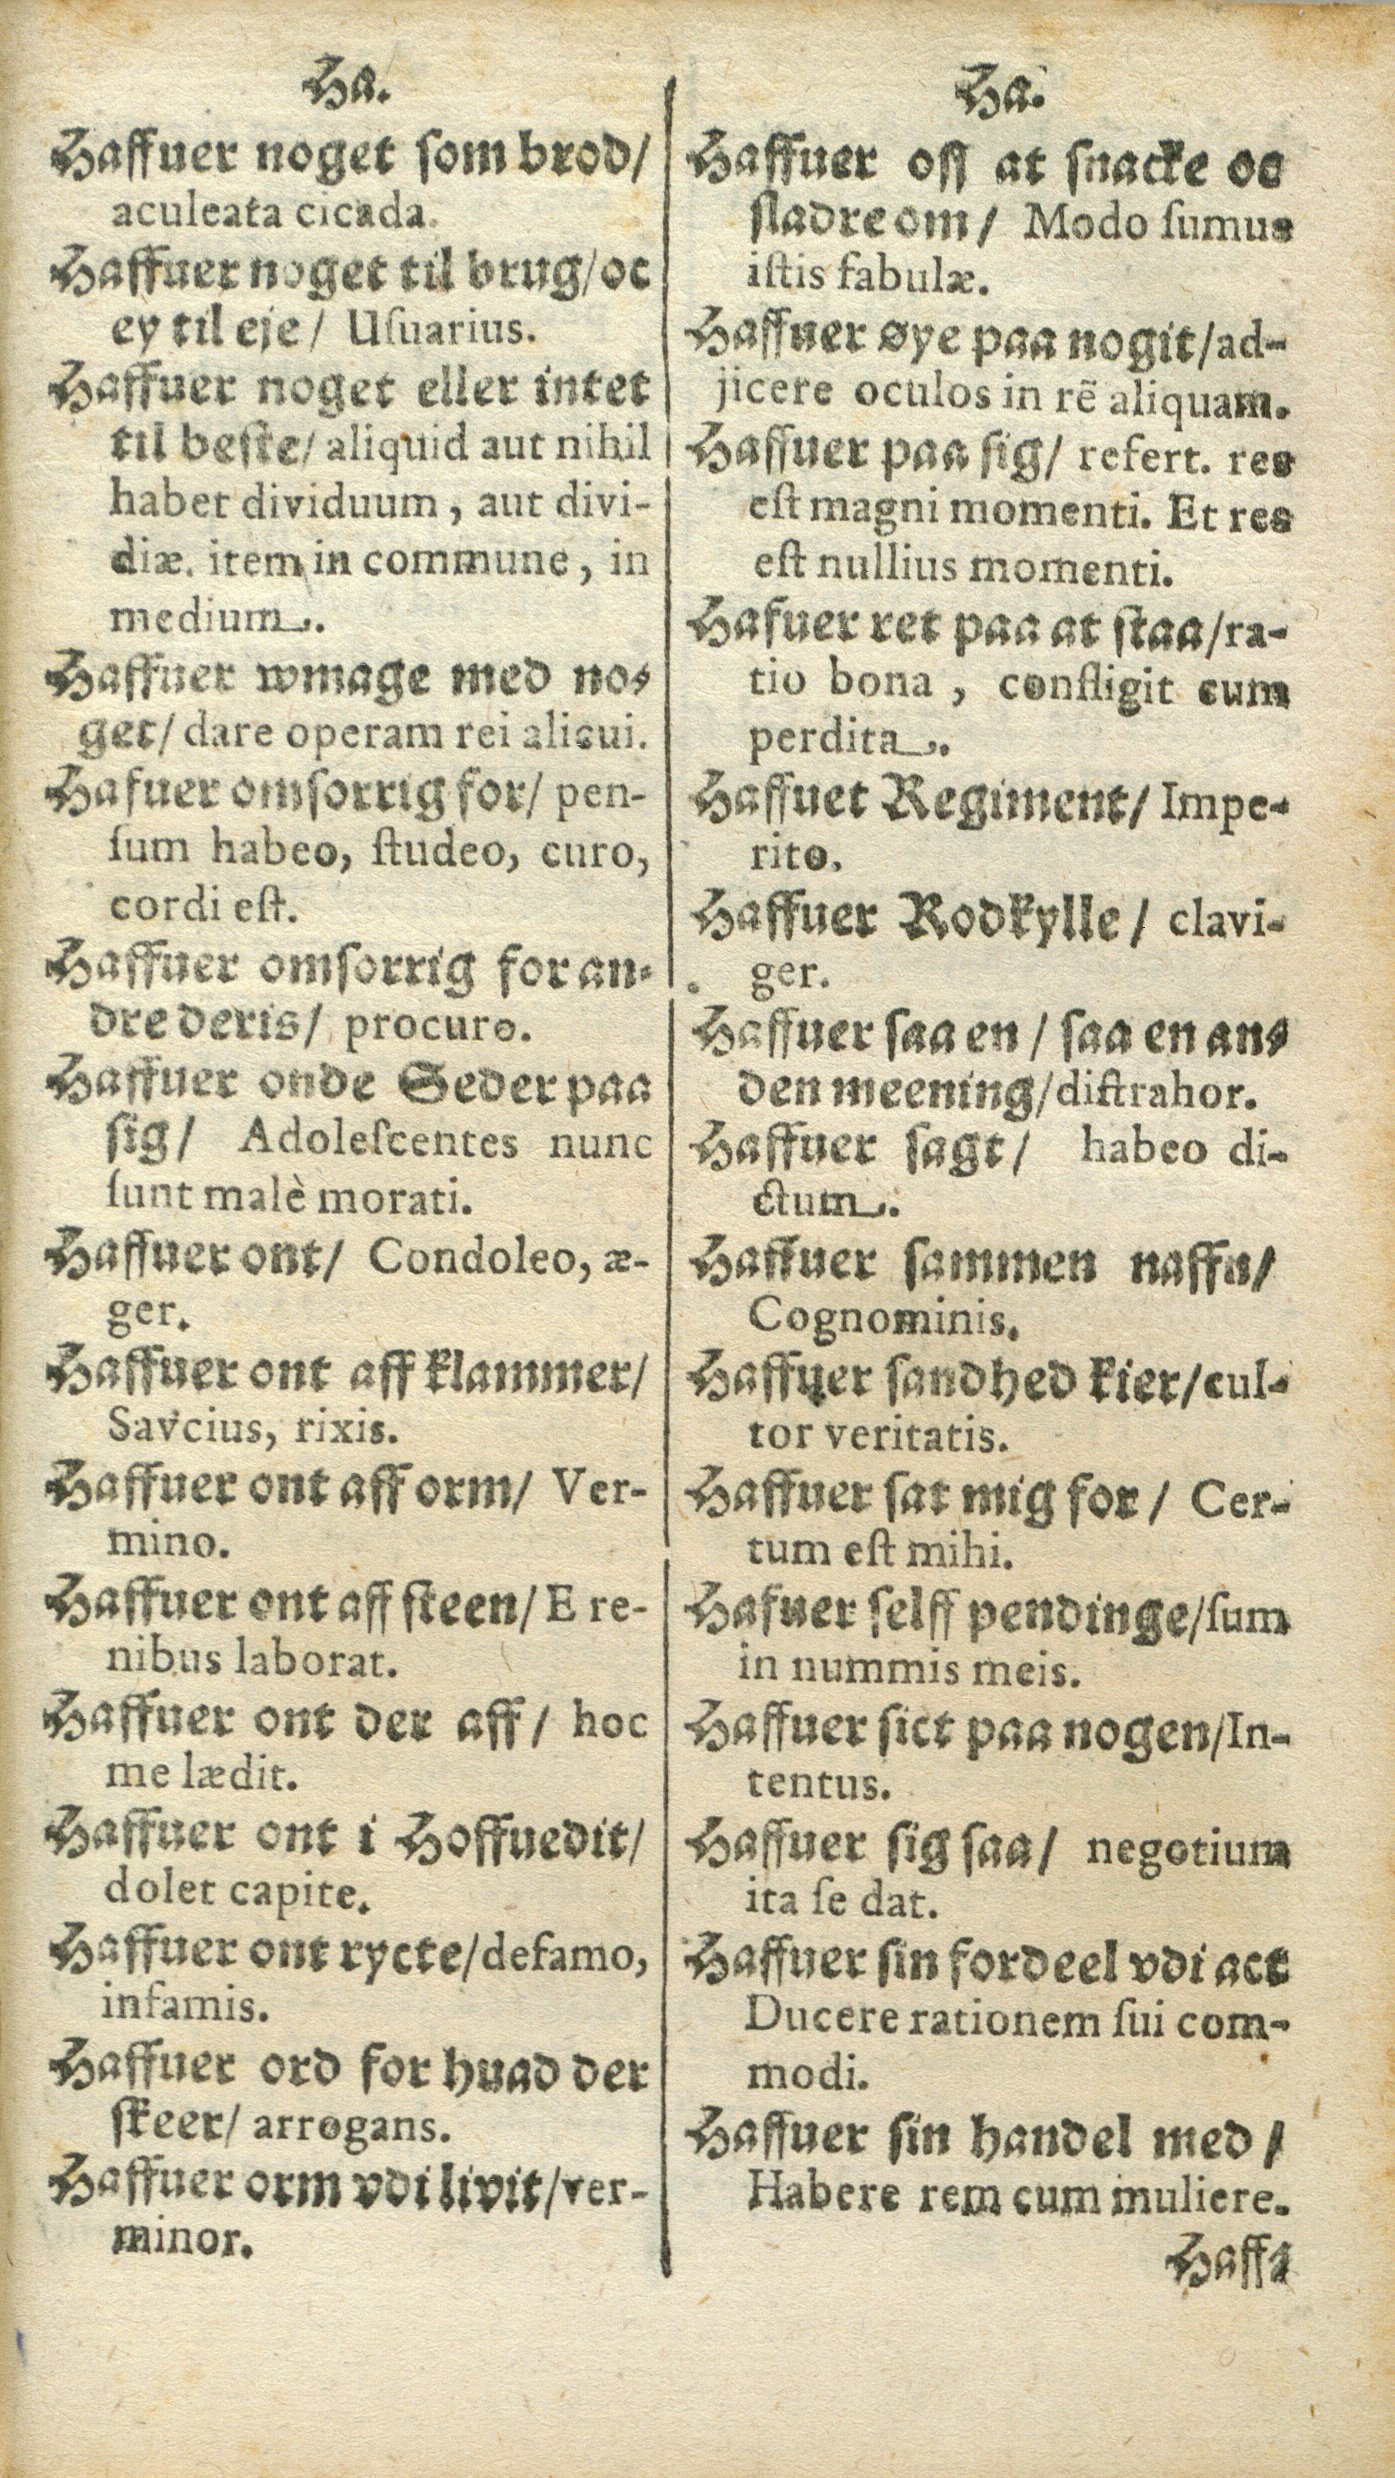 Ha.
Haffuer noget ſom brod/
aculeata cicada.
Haffuer noget til brug/oc
ey til eje/ Uſuarius.
Haffuer noget eller intet
til beſte/ aliquid aut nihil
habet dividuum, aut divi-
diæ. item in commune, in
medium.
Haffuer wmage med no-
get/ dare operam rei alicui.
Hafuer omſorrig for/ pen-
ſum habeo, ſtudeo, curo,
cordi eſt.
Haffuer omſorrig for an-
dre deris/ procuro.
Haffuer onde Seder paa
ſig/ Adoleſcentes nunc
ſunt malè morati.
Haffuer ont/ Condoleo, æ-
ger.
Haffuer ont aff klammer/
Savcius, rixis.
Haffuer ont aff orm/ Ver-
mino.
Haffuer ont aff ſteen/ E re-
nibus laborat.
Haffuer ont der aff/ hoc
me lædit.
Haffuer ont i Hoffuedit/
dolet capite.
Haffuer ont rycte/defamo,
infamis.
Haffuer ord for huad der
ſkeer/ arrogans.
Haffuer orm vdi livit/ver-
minor.
Ha.
Haffuer oſſ at ſnacke oc
ſladre om/ Modo ſumus
iſtis fabulæ.
Haffuer øye paa nogit/ad-
jicere oculos in rẽ aliquam.
Haffuer paa ſig/ refert. res
eſt magni momenti. Et res
eſt nullius momenti.
Hafuer ret paa at ſtaa/ra-
tio bona, confligit cum
perdita.
Haffuet Regiment/ Impe-
rito.
Haffuer Rodkylle/ clavi-
ger.
Haffuer ſaa en/ ſaa en an-
den meening/diſtrahor.
Haffuer ſagt/ habeo di-
ctum.
Haffuer ſammen naffn/
Cognominis.
Haffuer ſandhed kier/cul-
tor veritatis.
Haffuer ſat mig for/ Cer-
tum eſt mihi.
Hafuer ſelff pendinge/ſum
in nummis meis.
Haffuer ſict paa nogen/In-
tentus.
Haffuer ſig ſaa/ negotium
ita ſe dat.
Haffuer ſin fordeel vdi act
Ducere rationem ſui com-
modi.
Haffuer ſin handel med/
Habere rem cum muliere.
Haff-